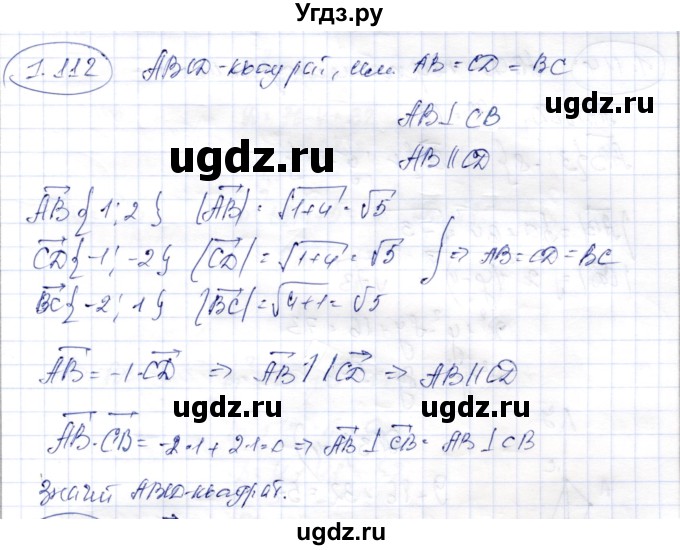 Угдз.ру
1.112 ABCD-квадрат, если AB = CD = BC
ugdz.ru
AB ⊥ CB
ugdz.ru
AB || CD
AB{1; 2} |AB| = √1+4 = √5
CD{-1; -2} |CD| = √1+4 = √5 } => AB = CD = BC
ugdz.ru ugdz.ru
BC{-2; 1} |BC| = √4+1 = √5
AB = -1·CD => AB ∥ CD => AB || CD
ugdz.ru ugdz.ru
AB·CB = -2·1 + 2·1 = 0 => AB ⊥ CB = AB ⊥ CB
значит ABCD-квадрат.
ugdz.ru ugdz.ru